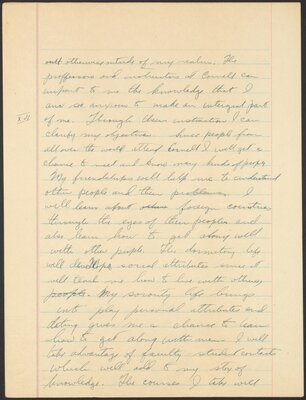 otherwise outside of my realm. The
professors and instructors at Cornell can
impart to me the knowledge that I
am so anxious to make an integral part
of me. Through their instruction I can
clarify my objectives. Since people from
all over the world attend Cornell I will get a
chance to meet and know many kinds of people.
My friendships will help me to understand
other people and their problems. I
will learn about foreign countries
through the eyes of their peoples and
also learn how to get along well
with other people. The dormitory life
will develop social attributes since it
will teach me how to live with others,
people. My sorority life brings
into play personal attributes and
dating gives me a chance to learn
how to get along with men. I will
take advantage of faculty-student contacts
which will add to my store of
knowledge. The courses I take will